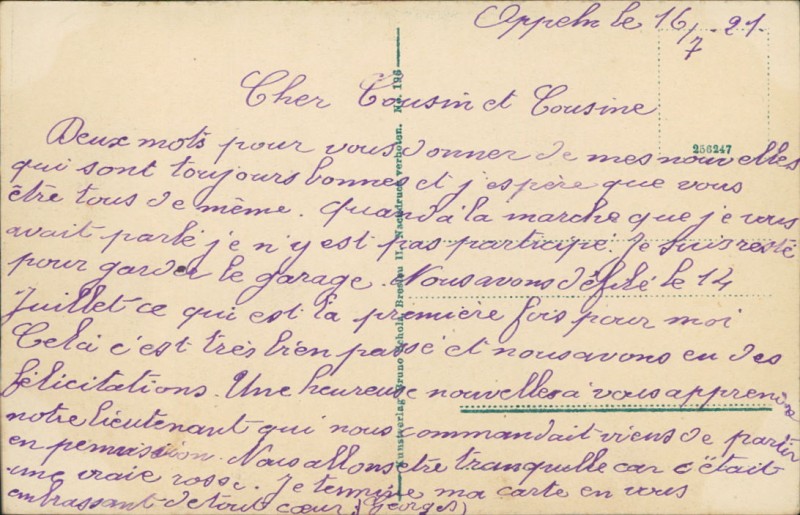 Oppeln le 16/7 - 21.
Cher Cousin et Cousine
Deux mots pour vous donner de mes nouvelles
qui sont toujours bonnes et j'espère que vous
être tous de même. Quand à la marche que je vous
avait parlé je n'y est pas participé. Je suis resté
pour garder le garage. Nous avons défilé le 14
Juillet ce qui est la première fois pour moi
Celà c'est très bien passé et nous avons eu des
félicitations. Une heureuse nouvelles à vous apprendre
notre lieutenant qui nous commandait viens de partir
en permission. Nous allons être tranquille car c'était
une vraie rosse. Je termine ma carte en vous
embrassant de tout cœur. (Georges)
Kunstverlag Bruno Scholz, Breslau II. Nachdruck verboten. No. 196
256247